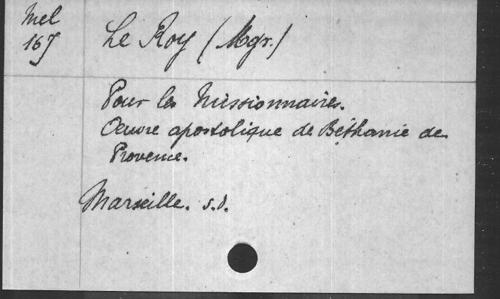 Mel
167
Le Roy (Mgr.)
Pour les Missionnaires.
Oeuvre apostolique de Béthanie de
Provence.
Marseille. s.d.